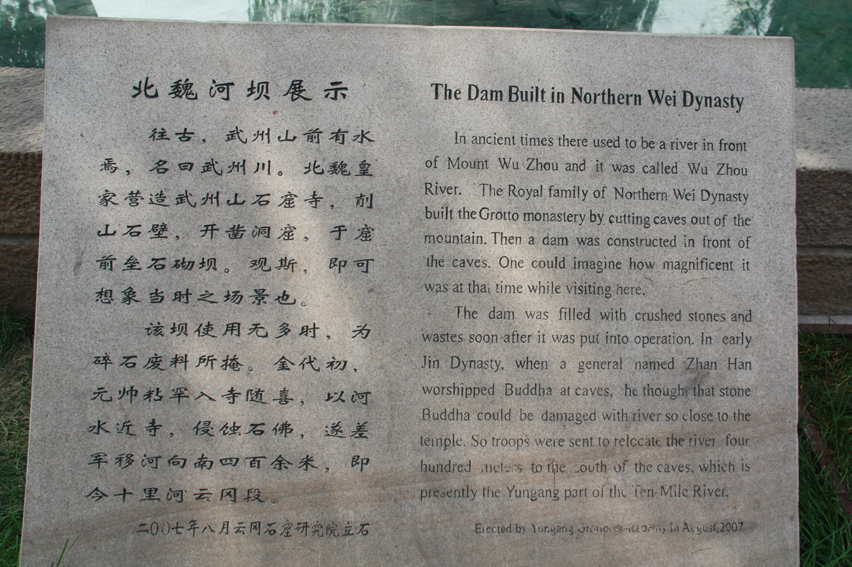 北魏河坝展示
往古，武州山前有水
焉，名曰武州川。北魏皇
家营造武州山石窟寺，削
山石壁，开凿洞窟，于窟
前垒石砌坝。观斯，即可
想象当时之场景也。
该坝使用无多时，为
碎石废料所掩。金代初，
元帅粘罕入寺随喜，以河
水近寺，侵蚀石佛，遂差
军移河向南四百余米，即
今十里河云冈段。
二〇〇七年八月云冈石窟研究院立石
The Dam Built in Northern Wei Dynasty
In ancient times there used to be a river in front
of Mount Wu Zhou and it was called Wu Zhou
River. The Royal family of Northern Wei Dynasty
built the Grotto monastery by cutting caves out of the
mountain. Then a dam was constructed in front of
the caves. One could imagine how magnificent it
was at that time while visiting here.
The dam was filled with crushed stones and
wastes soon after it was put into operation. In early
Jin Dynasty, when a general named Zhan Han
worshipped Buddha at caves, he though that stone
Buddha could be damaged with river so close to the
temple. So troops were sent to relocate the river four
hundred meters to the south of the caves, which is
presently the Yungang part of the Ten-Mile River.
Erected by Yungang in August,2007